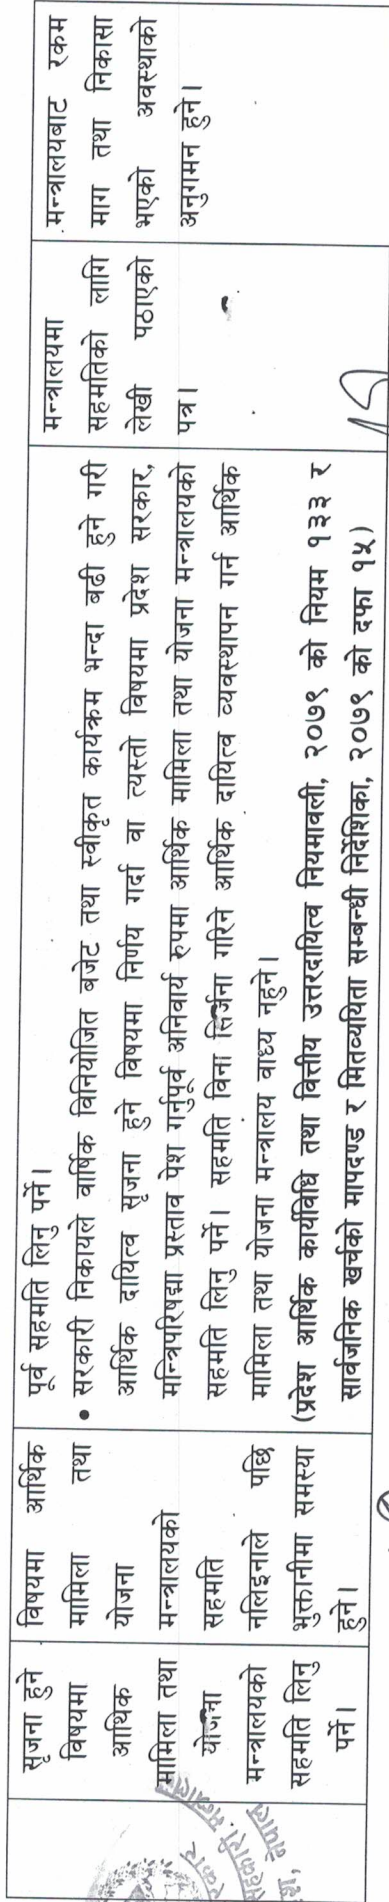 सृजना हुने
विषयमा
आर्थिक
मामिला तथा
योजना
मन्त्रालयको
सहमति लिनु
पर्ने।
विषयमा आर्थिक
मामिला तथा
योजना
मन्त्रालयको
सहमति
नलिइनाले पछि
भुक्तानीमा समस्या
हुने।
पूर्व सहमति लिनु पर्ने।
• सरकारी निकायले वार्षिक विनियोजित बजेट तथा स्वीकृत कार्यक्रम भन्दा बढी हुने गरी
आर्थिक दायित्व सृजना हुने विषयमा निर्णय गर्दा वा त्यस्तो विषयमा प्रदेश सरकार,
मन्त्रिपरिषद्मा प्रस्ताव पेश गर्नुपूर्व अनिवार्य रुपमा आर्थिक मामिला तथा योजना मन्त्रालयको
सहमति लिनु पर्ने। सहमति विना सिर्जना गरिने आर्थिक दायित्व व्यवस्थापन गर्न आर्थिक
मामिला तथा योजना मन्त्रालय वाध्य नहुने।
(प्रदेश आर्थिक कार्यविधि तथा वित्तीय उत्तरदायित्व नियमावली, २०७९ को नियम १३३ र
सार्वजनिक खर्चको मापदण्ड र मितव्ययिता सम्बन्धी निर्देशिका, २०७९ को दफा १५)
मन्त्रालयमा
सहमतिको लागि
लेखी पठाएको
पत्र।
मन्त्रालयबाट रकम
माग तथा निकासा
भएको अवस्थाको
अनुगमन हुने।